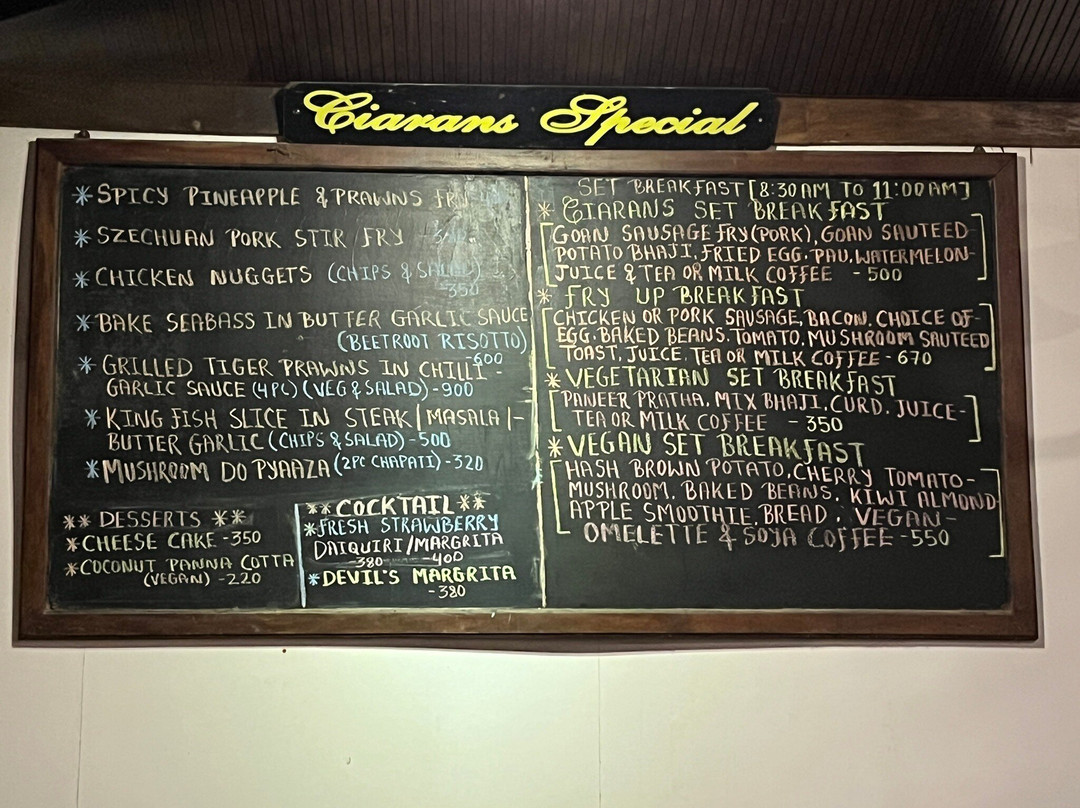 Ciarans Special
* SPICY PINEAPPLE & PRAWNS FRY
* SZECHUAN PORK STIR FRY
* CHICKEN NUGGETS (CHIPS & SALAD)
350
* BAKE SEABASS IN BUTTER GARLIC SAUCE
(BEETROOT RISOTTO)
-600
* GRILLED TIGER PRAWNS IN CHILLI -
GARLIC SAUCE (4PC) (VEG & SALAD) -900
* KING FISH SLICE IN STEAK | MASALA | -
BUTTER GARLIC (CHIPS & SALAD) -500
* MUSHROOM DO PYAAZA (2PC CHAPATI) -320
** DESSERTS **
* CHEESE CAKE -350
* COCONUT PANNA COTTA
(VEGAN) -220
** COCKTAIL **
* FRESH STRAWBERRY
DAIQUIRI / MARGRITA
380 -400
* DEVIL'S MARGRITA
-380
SET BREAKFAST [8:30 AM TO 11:00 AM]
* CIARANS SET BREAKFAST
[GOAN SAUSAGE FRY (PORK), GOAN SAUTEED-
POTATO BHAJI, FRIED EGG, PAU, WATERMELON-
JUICE & TEA OR MILK COFFEE - 500]
* FRY UP BREAKFAST
[CHICKEN OR PORK SAUSAGE, BACON, CHOICE OF-
EGG, BAKED BEANS, TOMATO, MUSHROOM SAUTEED
TOAST, JUICE, TEA OR MILK COFFEE - 670]
* VEGETARIAN SET BREAKFAST
[PANEER PRATHA, MIX BHAJI, CURD, JUICE-
TEA OR MILK COFFEE - 350]
* VEGAN SET BREAKFAST
[HASH BROWN POTATO, CHERRY TOMATO-
MUSHROOM, BAKED BEANS, KIWI ALMOND-
APPLE SMOOTHIE, BREAD, VEGAN-
OMELETTE & SOJA COFFEE -550]